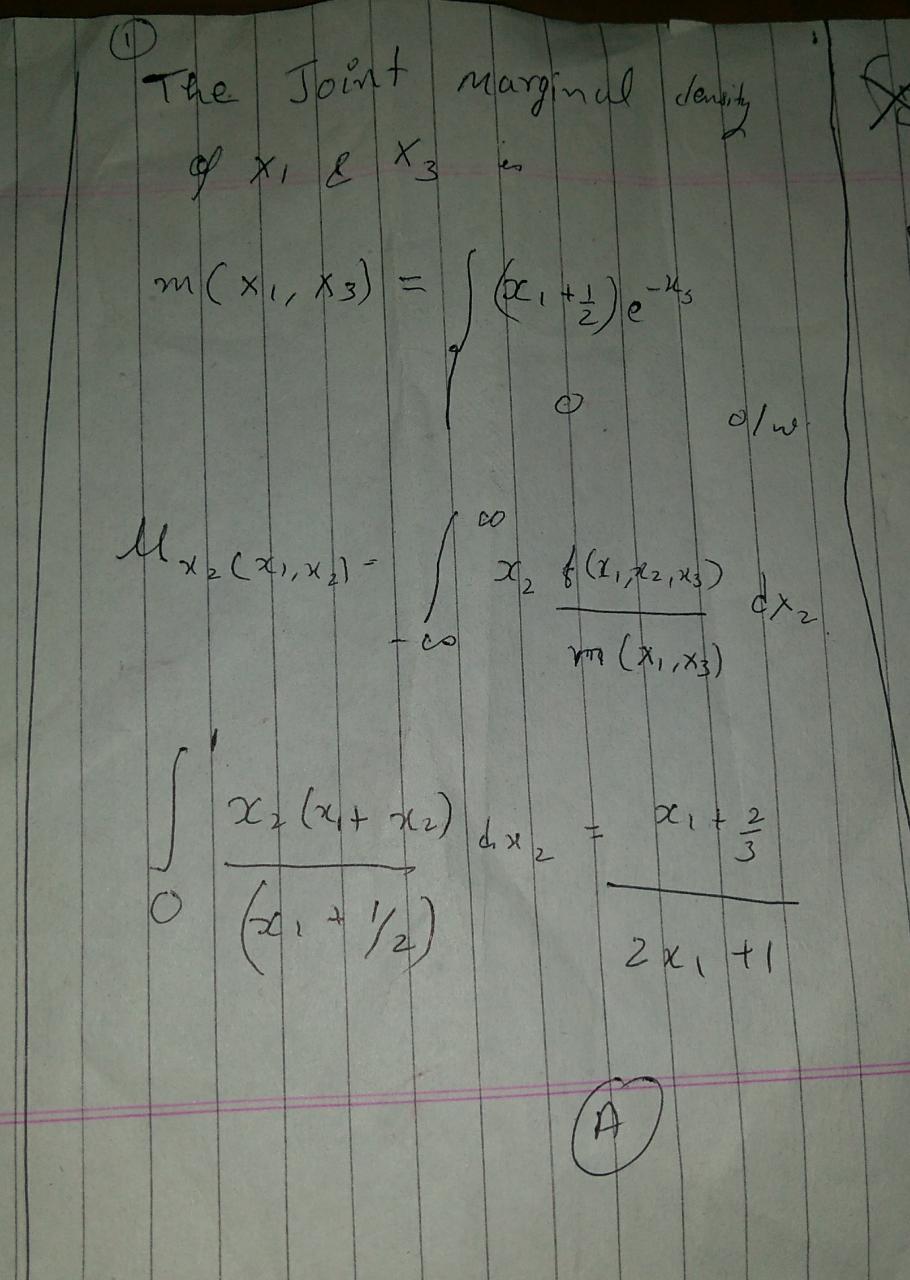 ①
The Joint marginal density
of x₁ & x₃ is
m(x₁, x₃) = { (x₁ + 1/2) e^(-x₃)
0 o/w
μ x₂(x₁, x₂) = ∫_{-∞}^{∞} x₂ f(x₁, x₂, x₃) / m(x₁, x₃) dx₂
∫_0^1 x₂(x₁ + x₂) / (x₁ + 1/2) dx₂ = (x₁ + 2/3) / (2x₁ + 1)
A